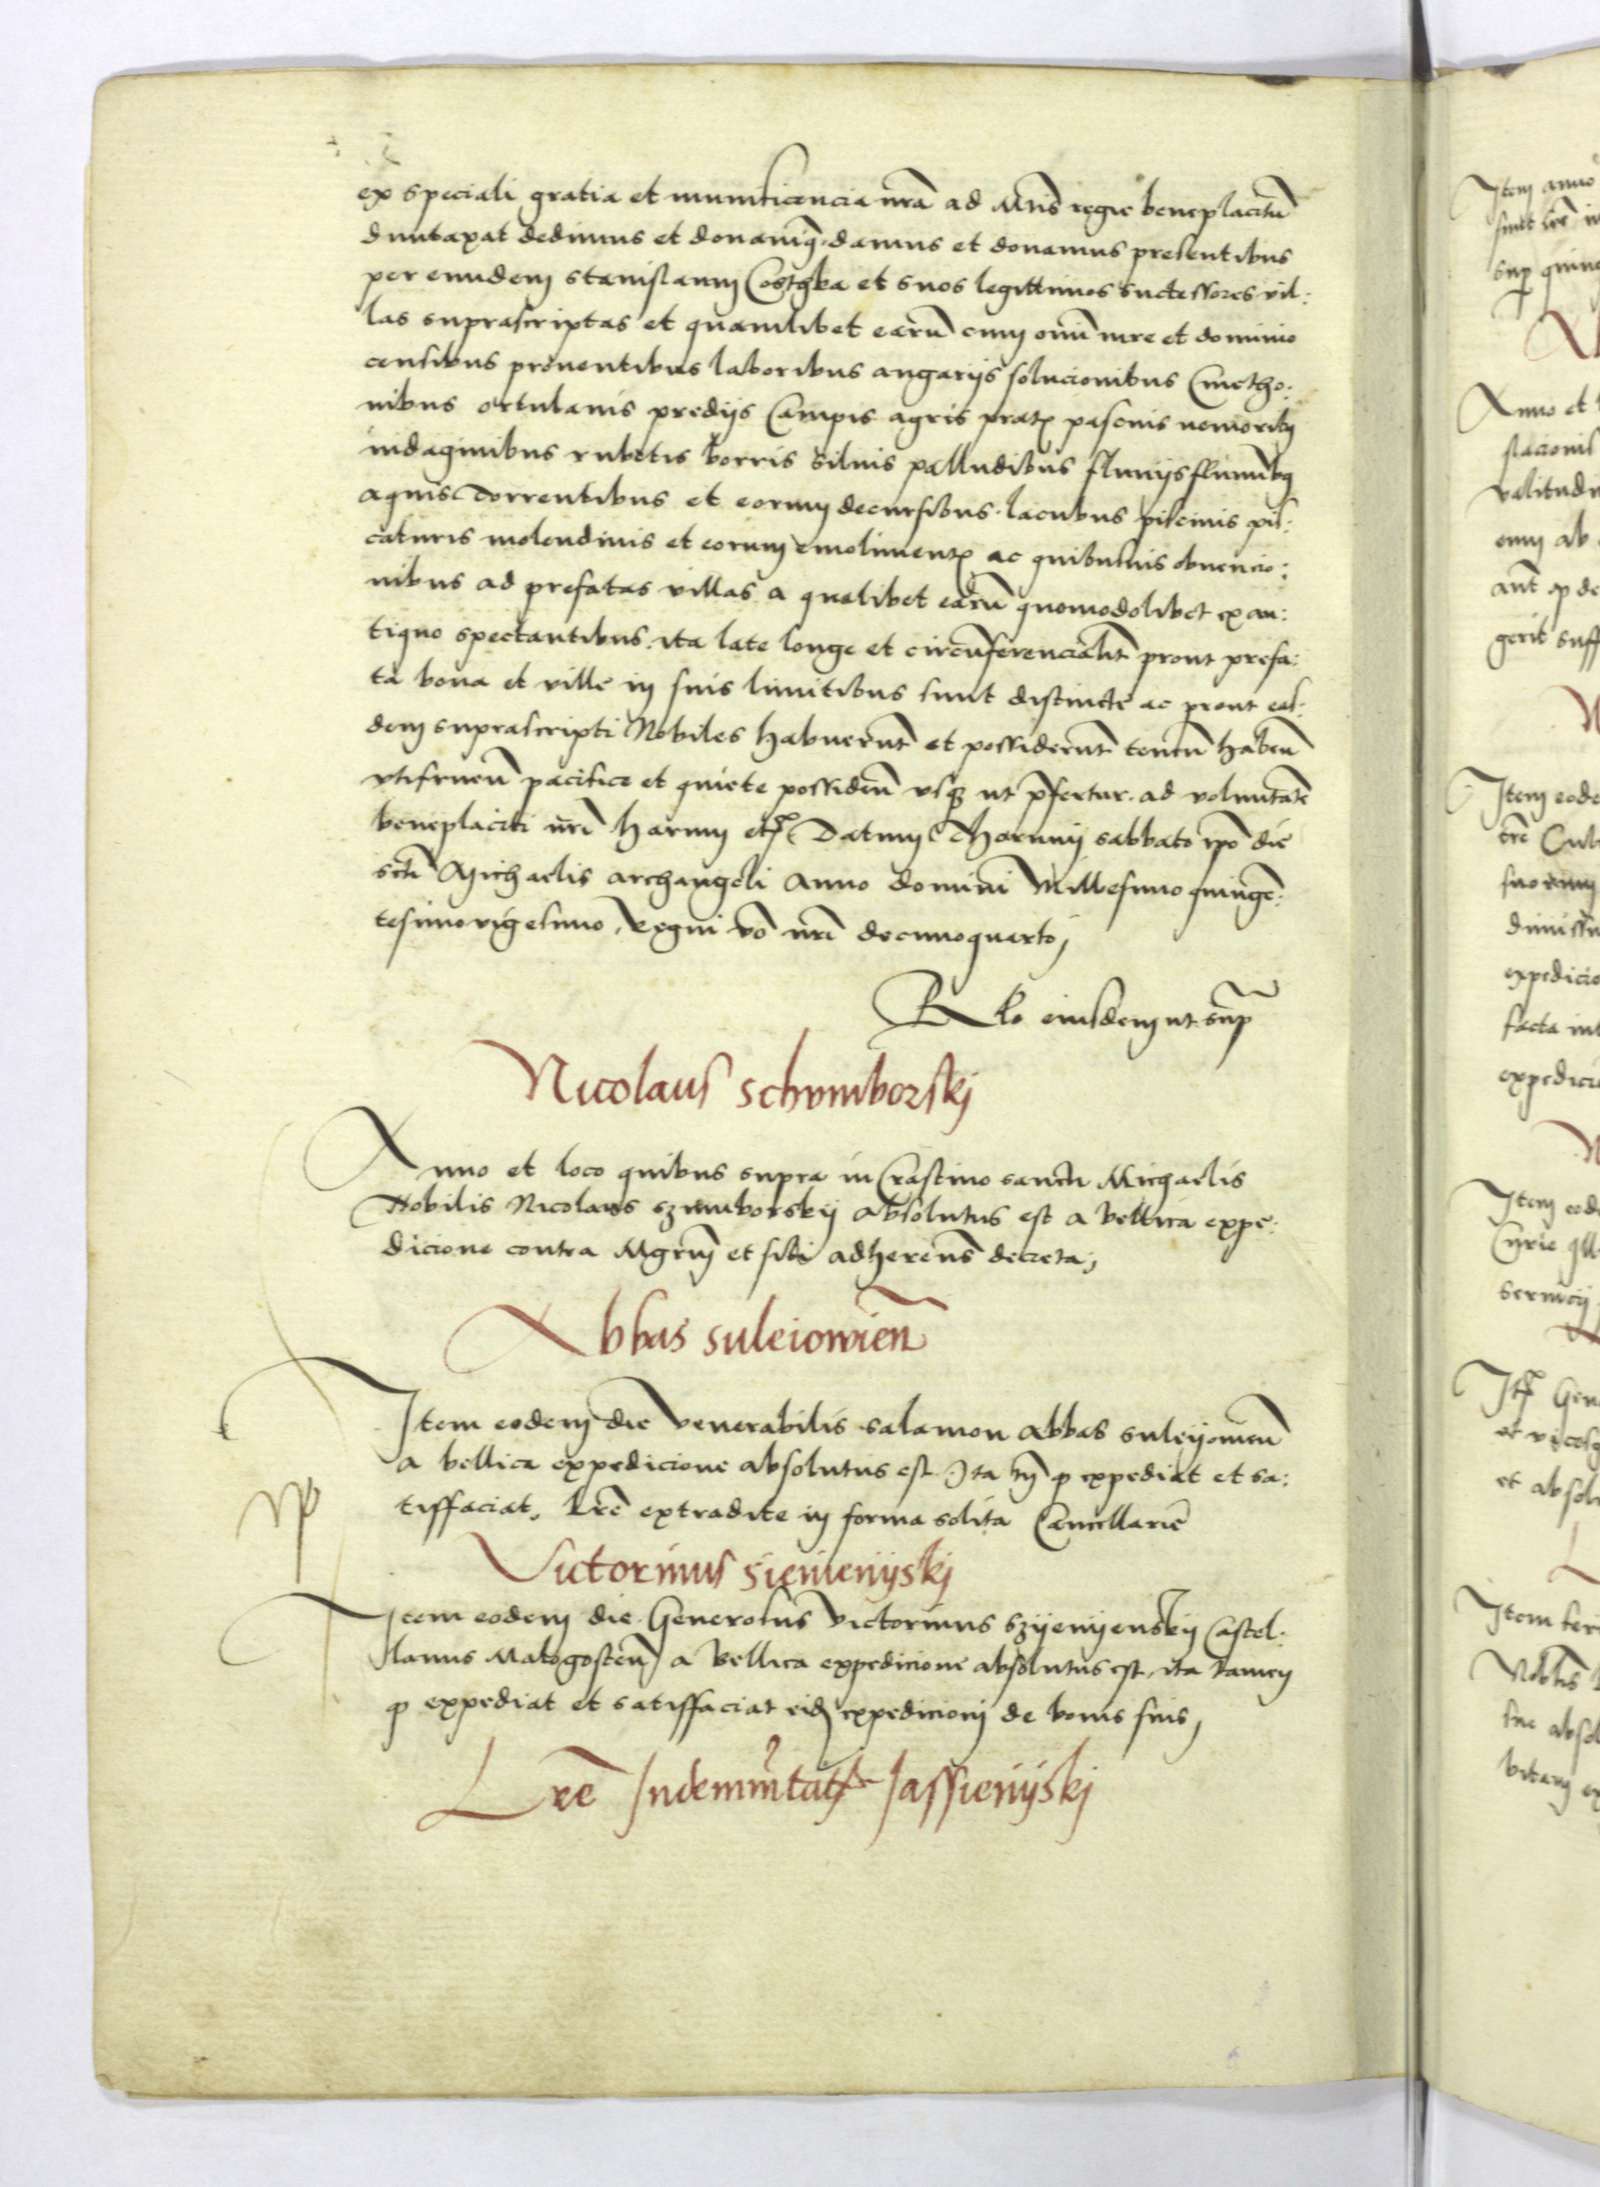 ex speciali gratia et munificencia nrã ad Mtis regie beneplacitũ
duntaxat dedimus et donauimꝰ. damus et donamus presentibus
per eundem Stanislaum Costhka et suos legittimos successores vil:
las suprascriptas et quamlibet earũ cum omni iure et dominio
censibus prouentibus laboribus angarijs solucionibus Cmetho:
nibus ortulanis predijs Campis agris pratꝭ pascuis nemoribꝰ
indaginibus rubetis borris siluis palludibus fluuijs fluminibꝰ
aquis torrentibus et eorum decursibus. lacubus piscinis pis:
caturis molendinis et eorum emolimentꝭ ac quibusuis obuencio:
nibus ad prefatas villas a qualibet earũ quomodolibet ex an:
tiquo spectantibus. ita late longe et circũferencialit̃ prout prefa:
ta bona et ville in suis limitibus sunt distincte ac prout eis:
dem suprascripti Nobiles habuerunt et possiderunt tenen̄ haben̄
vtifruen̄ pacifice et quiete possiden̄ vsqꝫ ut p̃fertur. ad voluntatẽ
beneplaciti nr̃i harum etꝭ Datum Thorunij sabbato ipõ die
scti Michaelis archangeli Anno domini Millesimo quingẽ:
tesimo vigesimo, Regni vo nr̃i decimoquarto,
Rlo eiusdem ut supͣ
Nicolaus schvmborskj
Anno et loco quibus supra in Crastino sancti Michaelis
Nobilis Nicolaus szumborskij absolutus est a bellica expe:
dicione contra Mgrum et sibi adherens̃ decreta,
Abbas suleiowien̄
Item eodem die venerabilis salamon Abbas suleijouien̄
a bellica expedicione absolutus est. Ita tñ ꝙ expediat et sa:
tiffaciat, Lrẽ extradite in forma solita Cancellarie
Victorinus sienienijskj
Item eodem die. Generosus Victorinus szijenijenskij Castel:
lanus Malogosten̄ a bellica expedicione absolutus est. ita tamen
ꝙ expediat et satiffaciat eidẽ expedicioni de bonis suis,
Lrẽ Indemnitatꝭ Jassienijskj